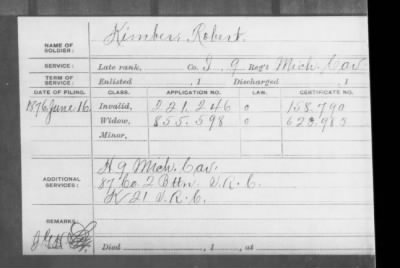 Kimber, Robert.
NAME OF SOLDIER:
SERVICE: Late rank, Co. I, 9 Reg't Mich. Cav.
TERM OF SERVICE: Enlisted , 1 Discharged , 1
DATE OF FILING. CLASS. APPLICATION NO. LAW. CERTIFICATE NO.
1876 June 16 Invalid, 221.246 158.790
Widow, 855.598 623.985
Minor,
ADDITIONAL SERVICES:
H 9 Mich. Cav.
87 Co 2 Bttn. V.R.C.
K 21 V.R.C.
REMARKS:
Died , 1 , at